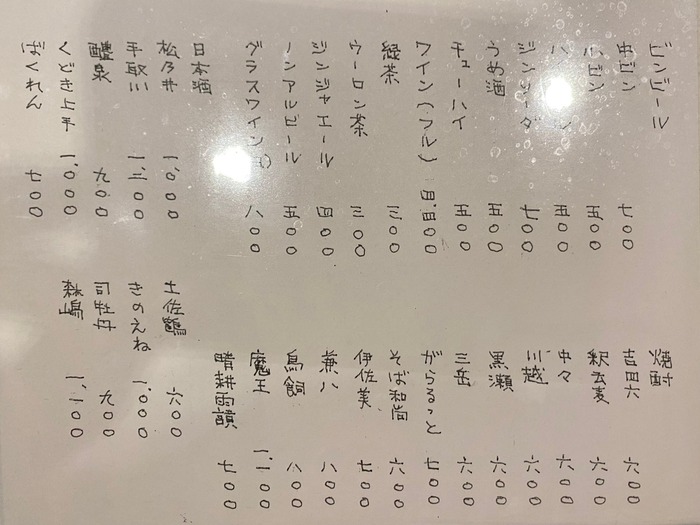 ビンビール
中ビン 七〇〇
小ビン 五〇〇
ハ 五〇〇
ジンソーダ 七〇〇
うめ酒 五〇〇
チューハイ 五〇〇
ワイン(フル) 四、四〇〇
緑茶 三〇〇
ウーロン茶 三〇〇
ジンジャエール 四〇〇
ノンアルビール 五〇〇
グラスワイン 八〇〇
焼酎
吉四六 六〇〇
釈云麦 六〇〇
中々 六〇〇
川越 六〇〇
黒瀬 六〇〇
三岳 六〇〇
がらるっと 七〇〇
そば和尚 六〇〇
伊佐美 七〇〇
兼八 八〇〇
鳥飼 八〇〇
魔王 一、一〇〇
晴耕雨讀 七〇〇
日本酒
松乃井 一、〇〇〇
手取川 一、三〇〇
醴泉 九〇〇
くどき上手 一、〇〇〇
ばくれん 七〇〇
土佐鶴 六〇〇
きのえね 一、〇〇〇
司牡丹 九〇〇
森嶋 一、一〇〇